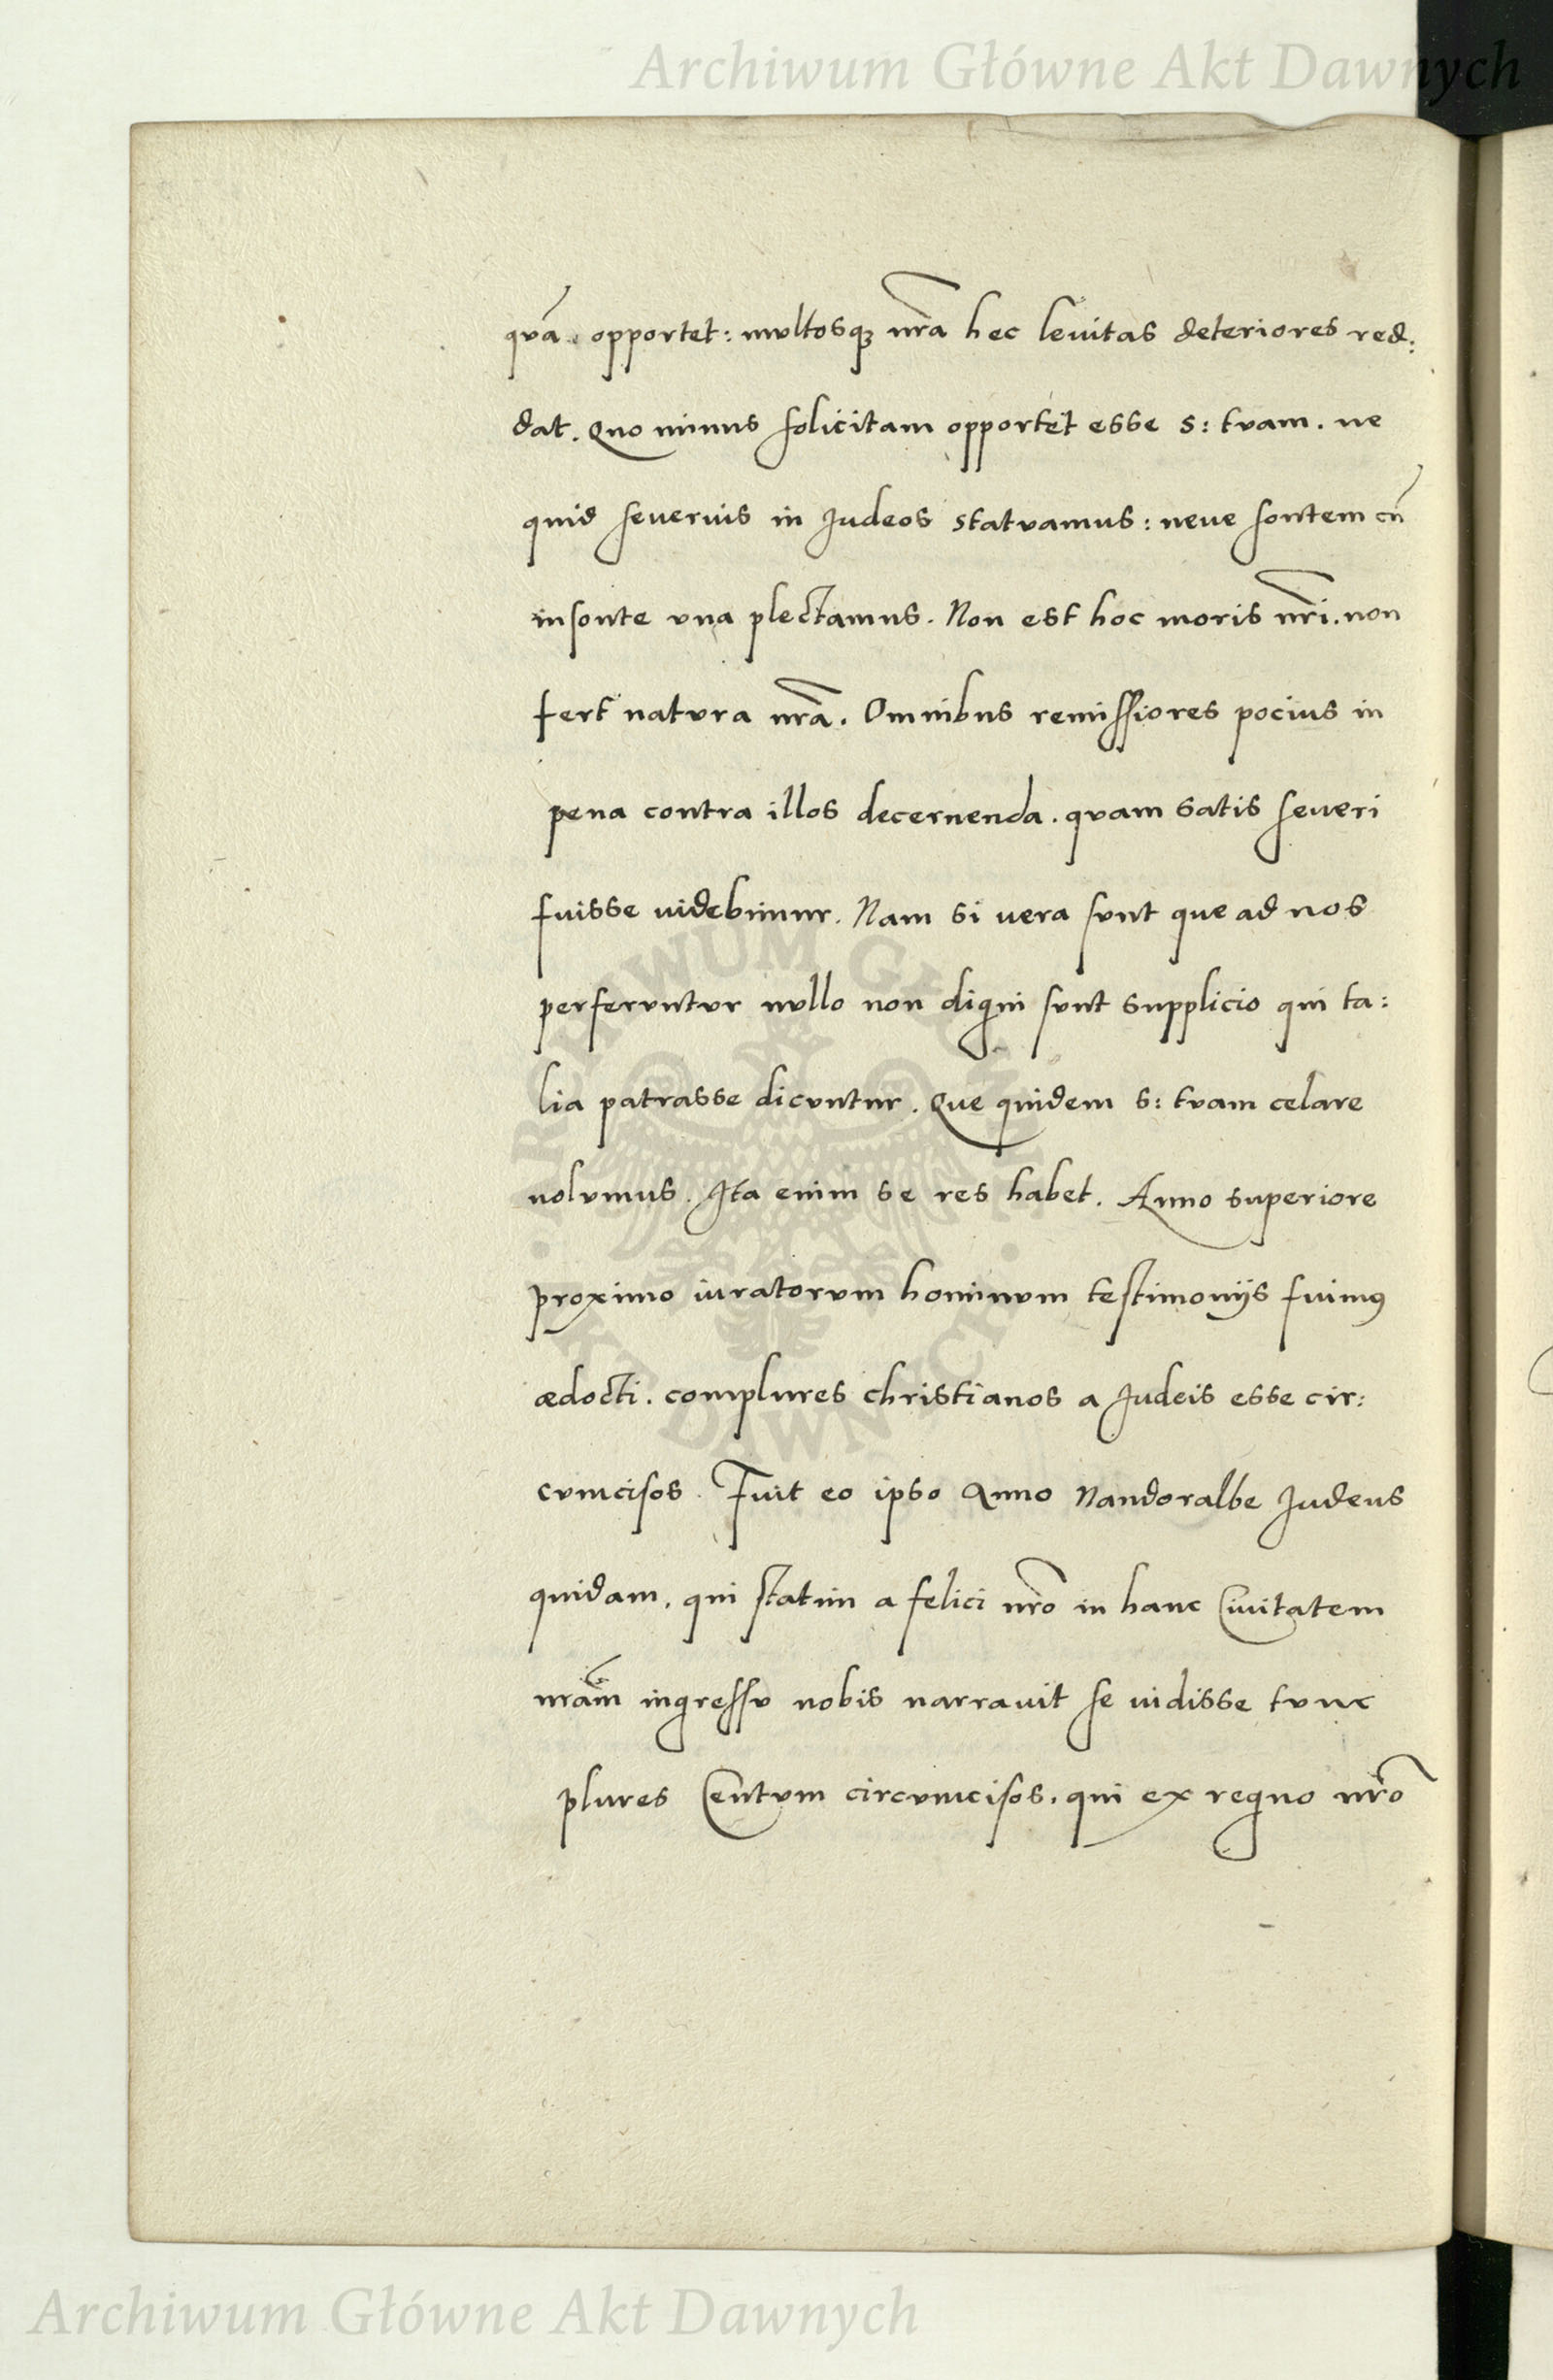 Archiwum Główne Akt Dawnych
qvã. opportet: mvltosq₃ nr̃a hec leuitas deteriores red:
dat. Quo minus solicitam opportet esse S: tvam. ne
quid severius in Judeos statvamus: neue sontem cũ
insonte vna plectamus. Non est hoc moris nr̃i. non
fert natvra nr̃a. Omnibus remissiores pocius in
pena contra illos decernenda. qvam satis seueri
fvisse uidebimur. Nam si uera svnt que ad nos
perfervntvr nvllo non digni svnt supplicio qui ta:
lia patrasse dicvntur. Qve quidem S: tvam celare
nolvmus. Ita enim se res habet. Anno superiore
proximo iuratorvm hominvm testimonijs fuimꝰ
ædocti. complures christianos a Judeis esse cir:
cvmcisos. Fuit eo ipso Anno Nandoralbe Judeus
quidam. qui statim a felici nr̃o in hanc Ciuitatem
nr̃am ingressv nobis narrauit se uidisse tvnc
plures Centvm circvmcisos. qui ex regno nr̃o
ARCHIWUM GŁÓWNE · AKT DAWNYCH ·
Archiwum Główne Akt Dawnych